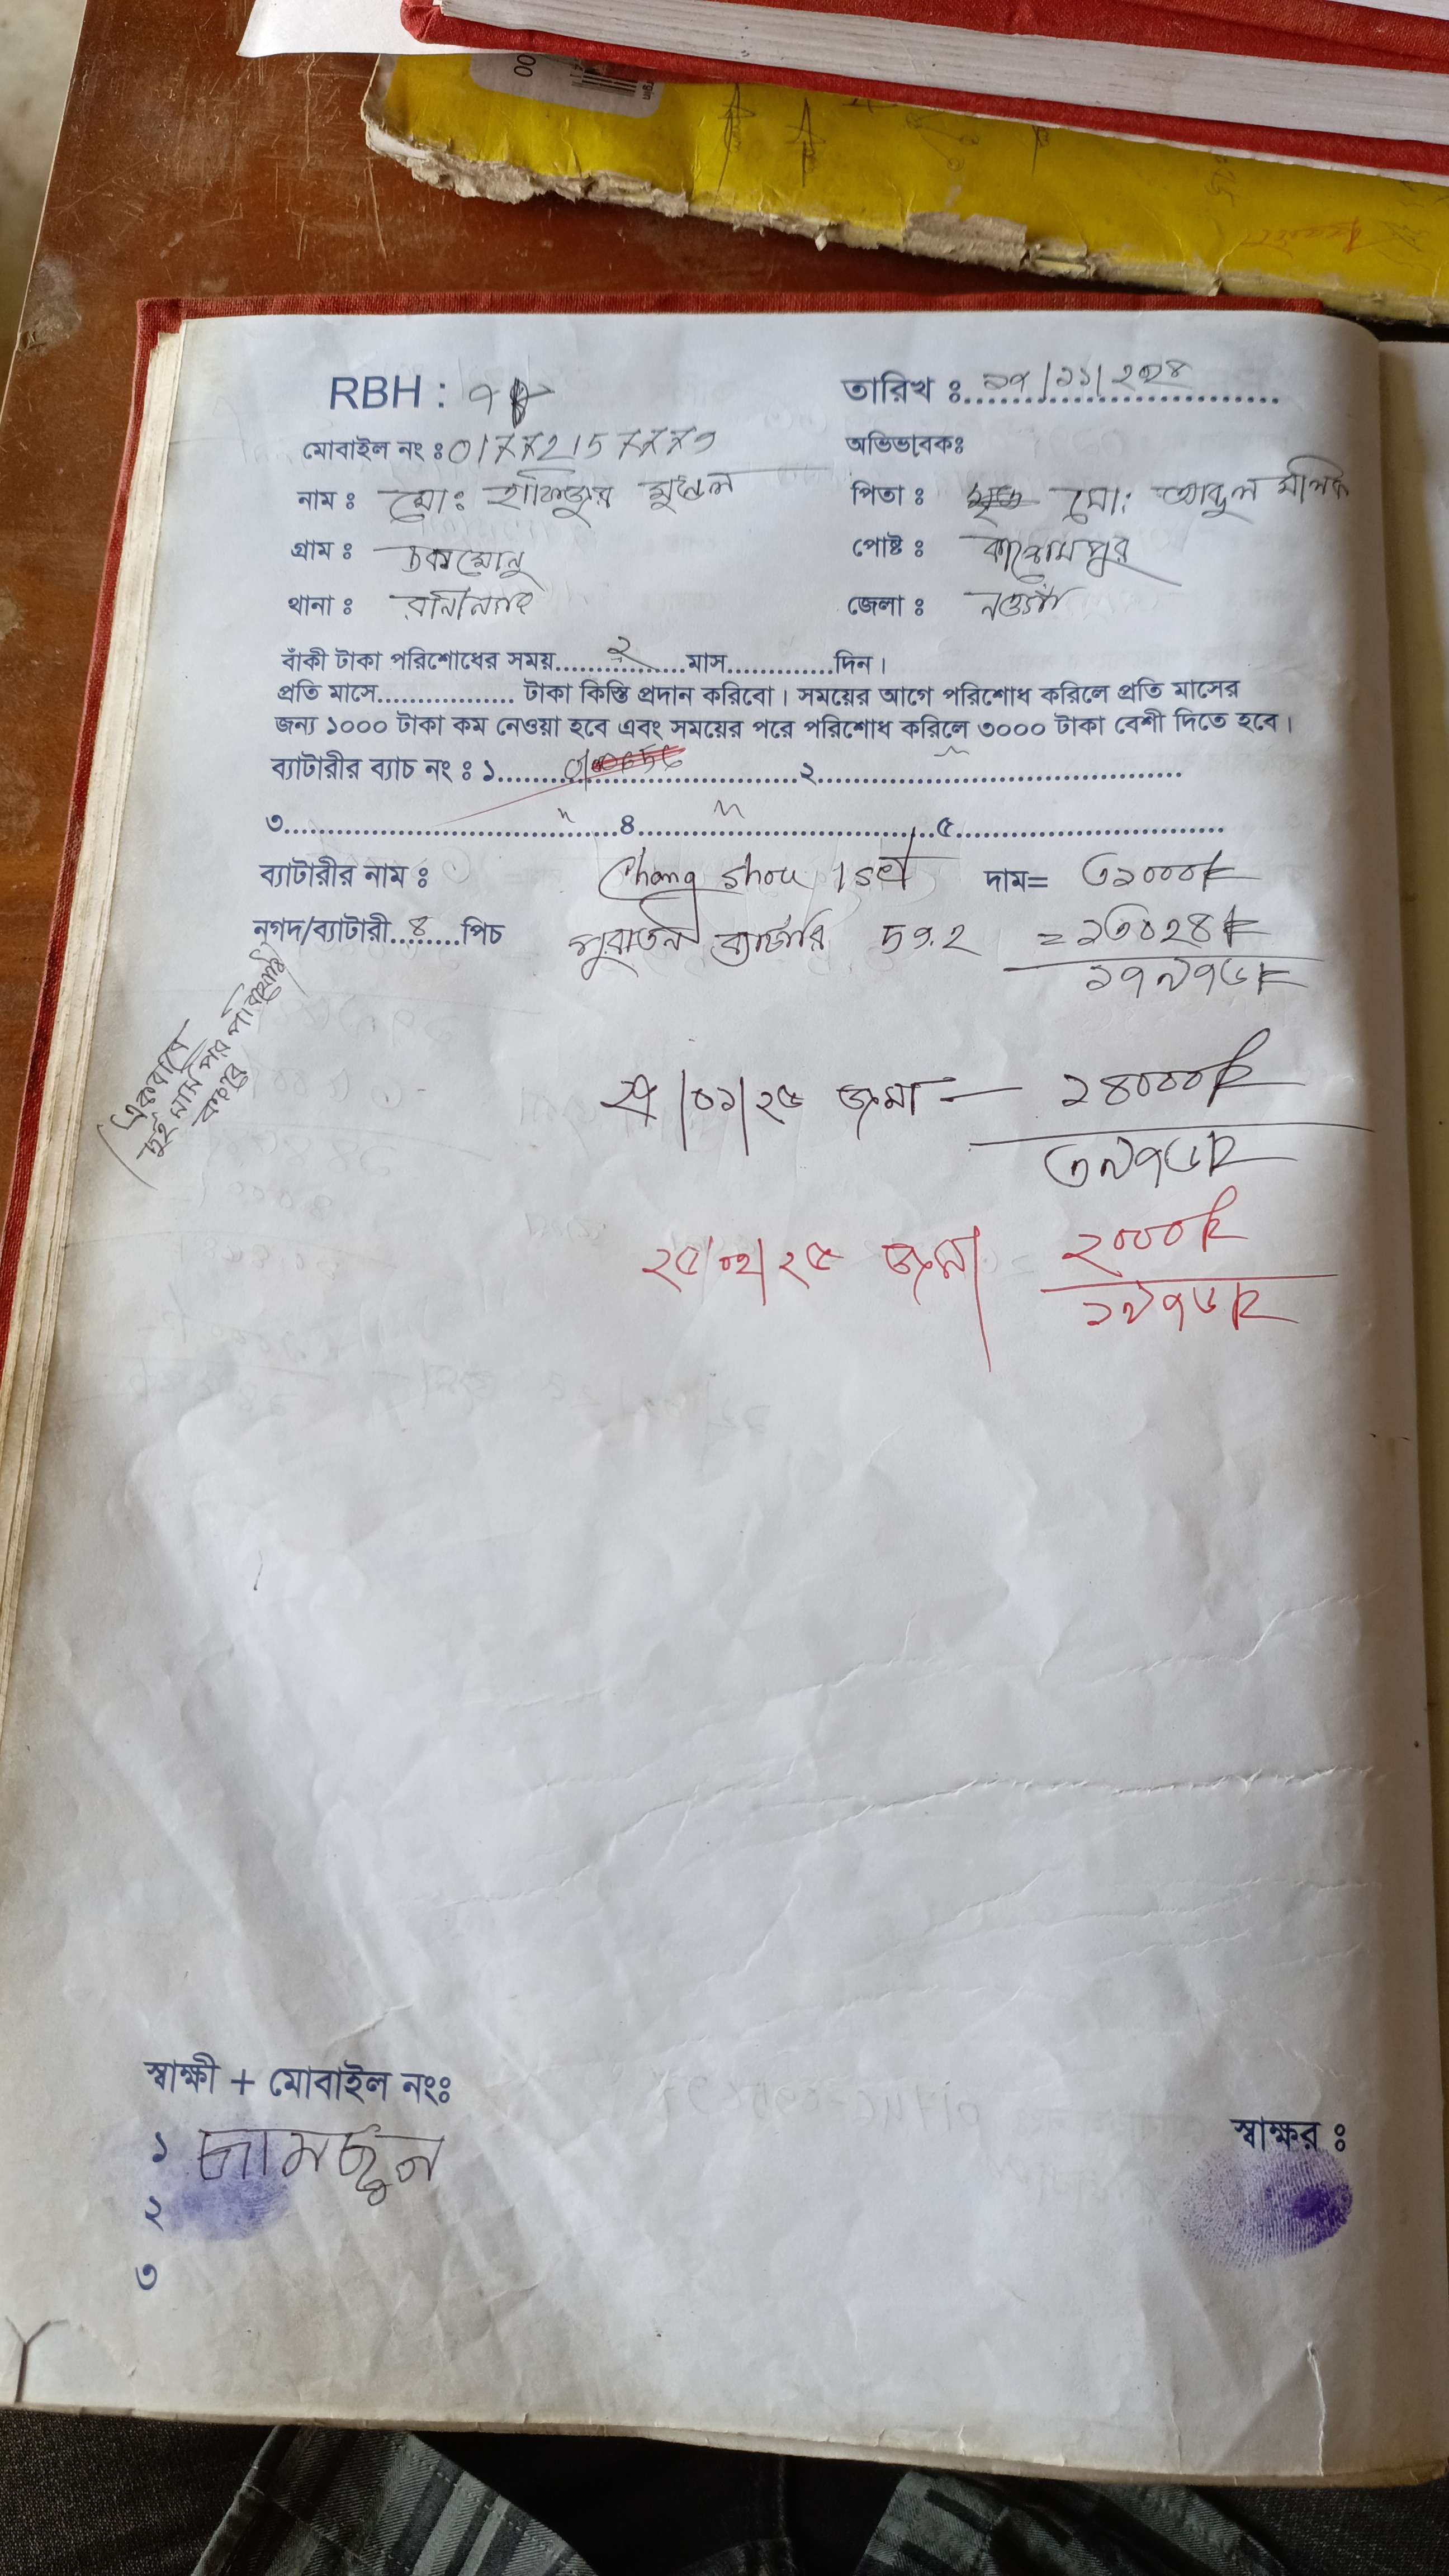 RBH : ৭৮
তারিখ ঃ ১৭/১১/২০২৪
মোবাইল নং ঃ
অভিভাবকঃ
নাম ঃ মো: হাফিজুর মন্ডল
পিতা ঃ মো: আব্দুল মালিক
গ্রাম ঃ চকমোনু
পোষ্ট ঃ কাশেমপুর
থানা ঃ রানীনগর
জেলা ঃ নওগাঁ
বাঁকী টাকা পরিশোধের সময়........২........মাস.............দিন।
প্রতি মাসে................. টাকা কিস্তি প্রদান করিবো। সময়ের আগে পরিশোধ করিলে প্রতি মাসের
জন্য ১০০০ টাকা কম নেওয়া হবে এবং সময়ের পরে পরিশোধ করিলে ৩০০০ টাকা বেশী দিতে হবে।
ব্যাটারীর ব্যাচ নং ঃ ১..................২..................
৩..................৪..................৫..................
ব্যাটারীর নাম ঃ Chang shou 1 set দাম= ৩১০০০৳
নগদ/ব্যাটারী..৪..পিচ পুরাতন ব্যাটারি ৮৭.২ =১৩০২৪৳
১৭৯৭৬৳
একবারে
দুই মাস পর পরিশোধ
করবে
/০১/২৫ জমা — ১৪০০০৳
৩৯৭৬৳
২৫/০২/২৫ জমা ২০০০৳
১৯৭৬৳
স্বাক্ষী + মোবাইল নংঃ
স্বাক্ষর ঃ
১
২
৩